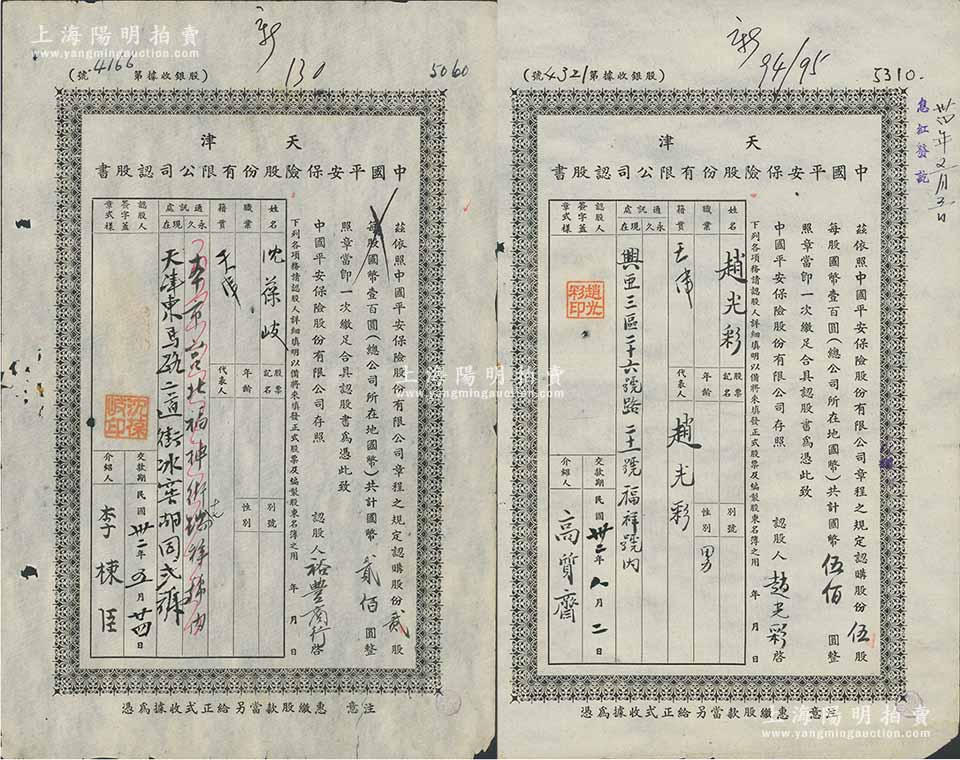 上海陽明拍賣
www.yangmingauction.com
新
130
(號4166第據收銀股)
5060
津 天
書股認司公限有份股險保安平國中
茲依照中國平安保險股份有限公司章程之規定認購股份貳股
每股國幣壹百圓(總公司所在地國幣)共計國幣貳佰圓整
照章當卽一次繳足合具認股書爲憑此致
中國平安保險股份有限公司存照
認股人裕豐商行啓
年 月 日
下列各項務請認股人詳細填明以備將來填發正式股票及編製股東名簿之用
姓名
沈葆岐
股票記名
別號
職業
年齡
性別
籍貫
天津
代表人
通訊處
永久
現在
天津東馬路二道街冰窖胡同弍號
認股人簽字蓋章式樣
沈葆岐印
交款期
民國卅二年五月廿四日
介紹人
李棟臣
注意 惠繳股款當另給正式收據爲憑
新
94/95
(號4321第據收銀股)
5310
息紅發訖
津 天
書股認司公限有份股險保安平國中
茲依照中國平安保險股份有限公司章程之規定認購股份伍股
每股國幣壹百圓(總公司所在地國幣)共計國幣伍佰圓整
照章當卽一次繳足合具認股書爲憑此致
中國平安保險股份有限公司存照
認股人趙光彩啓
年 月 日
下列各項務請認股人詳細填明以備將來填發正式股票及編製股東名簿之用
姓名
趙光彩
股票記名
趙光彩
別號
職業
年齡
性別
男
籍貫
天津
代表人
通訊處
永久
現在
興亞三區二十六號路二十號福祥號內
認股人簽字蓋章式樣
趙光彩印
交款期
民國卅二年八月二日
介紹人
高質齋
注意 惠繳股款當另給正式收據爲憑
上海陽明拍賣
www.yangmingauction.com
上海陽明拍賣
www.yangmingauction.com